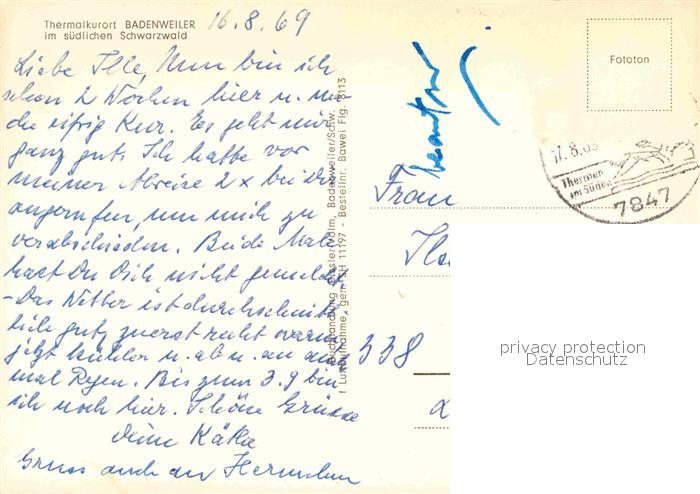 Thermalkurort BADENWEILER
im südlichen Schwarzwald
16.8.69
Liebe Ille, Nun bin ich
schon 2 Wochen hier u. ma
che eifrig Kur. Es geht mir
ganz gut. Ich hatte vor
meiner Abreise 2 x bei Dir
angerufen, um mich zu
verabschieden. Beide Male
hast Du Dich nicht gemeldet.
- Das Wetter ist durchschnitt
lich gut, zuerst recht warm
jetzt kühler u. ab u. an auch
mal Regen. Bis zum 3.9 bin
ich noch hier. Schöne Grüsse
Deine Käthe
Gruss auch an Hermchen
Badenweiler/Schw.
f Luftaufnahme, gem. SH 11197 - Bestellnr. Bawei Flg. 8113
Frau
338
Fototon
17.8.69
Thermen
im Süden
7847
privacy protection
Datenschutz